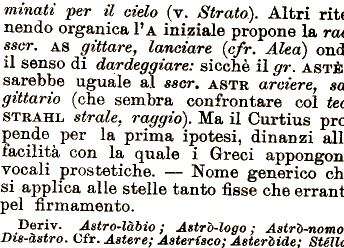 minati per il cielo (v. Strato). Altri rite
nendo organica l'A iniziale propone la rad
sscr. AS gittare, lanciare (cfr. Alea) ond
il senso di dardeggiare: sicchè il gr. ASTÈ
sarebbe uguale al sscr. ASTR arciere, sa
gittario (che sembra confrontare col ted
STRAHL strale, raggio). Ma il Curtius pro
pende per la prima ipotesi, dinanzi all
facilità con la quale i Greci appongon
vocali prostetiche. — Nome generico ch
si applica alle stelle tanto fisse che errant
pel firmamento.
Deriv. Astro-làbio; Astrò-logo; Astrò-nomo
Dis-àstro. Cfr. Astere; Asterísco; Asteròide; Stélla